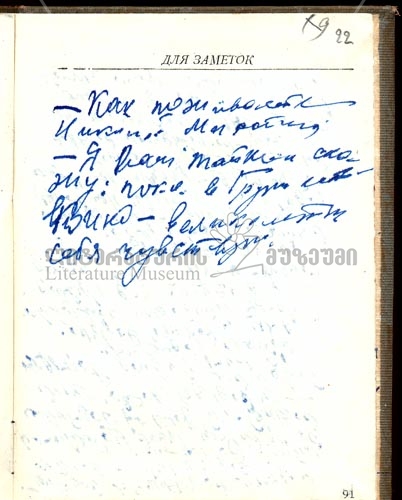 19 22
ДЛЯ ЗАМЕТОК
— Как поживаете
Никита
— Я Вам тайком ска-
жу: пока в Грузии
вино — великолепно
себя чувствую.
ლიტერატურის მუზეუმი
Literature Museum
91